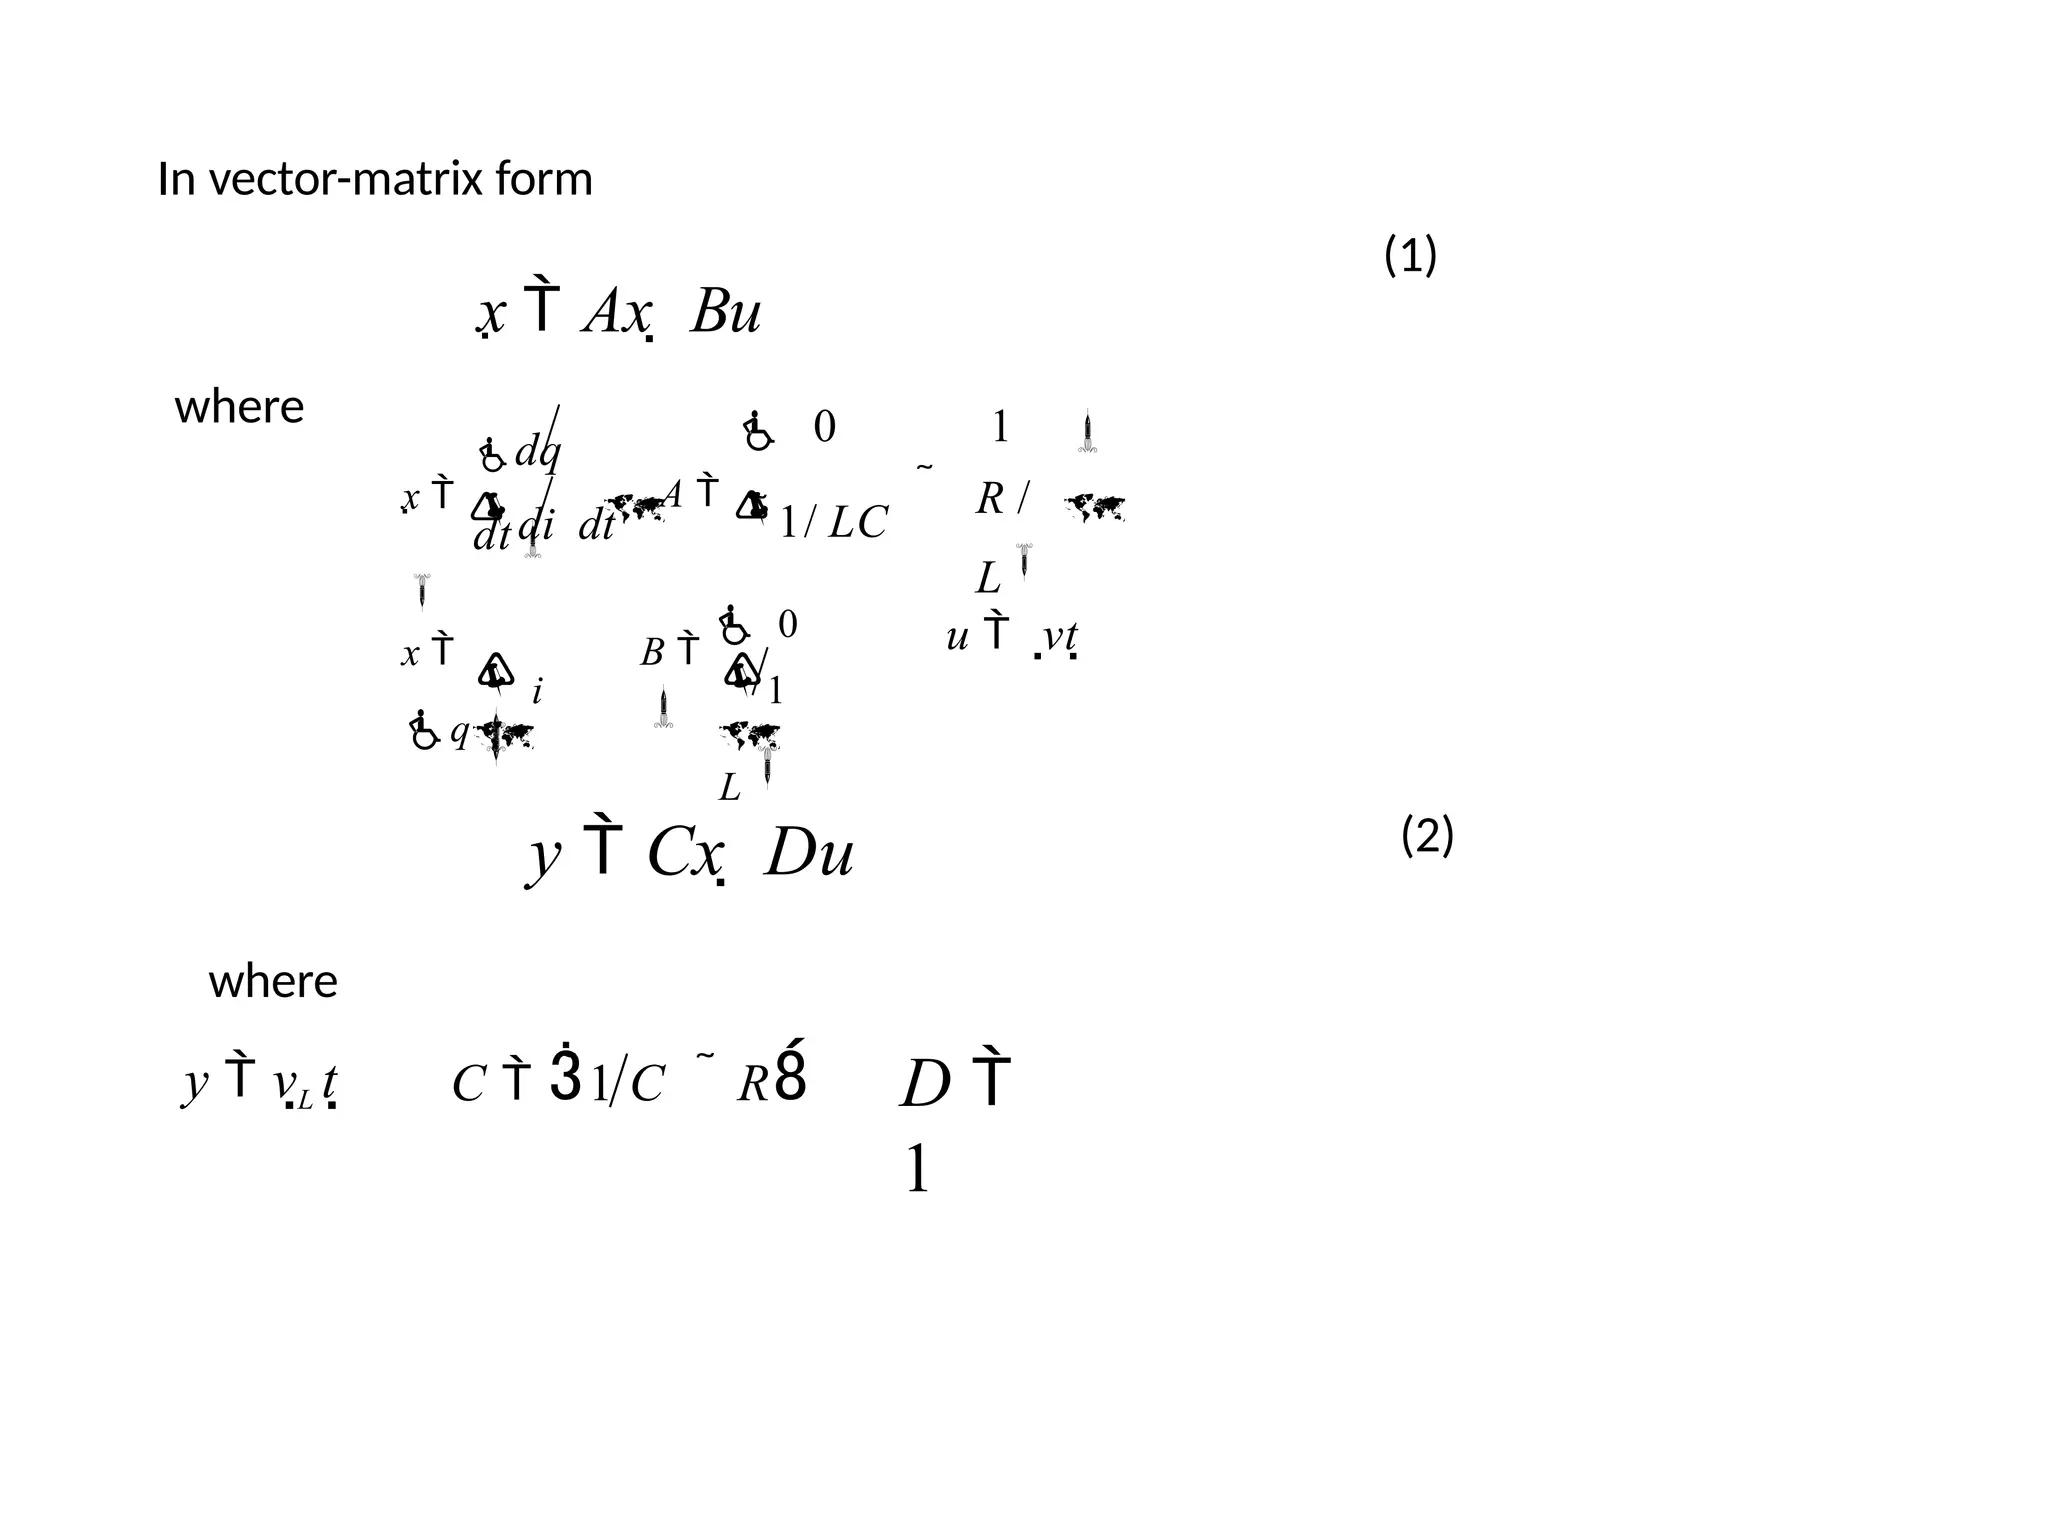 In vector-matrix form
(1)
ẋ T̀ Ax Bu
where
dq
dt
x T̀
di dt
A T̀
0 1
1/ LC ˜ R / L
x T̀
q
i
B T̀
0
1
L
u T̀ vt
y T̀ Cx Du
(2)
where
y T̀ v_L t
C T̀ 3̇ 1/C ˜ R8́
D T̀
1